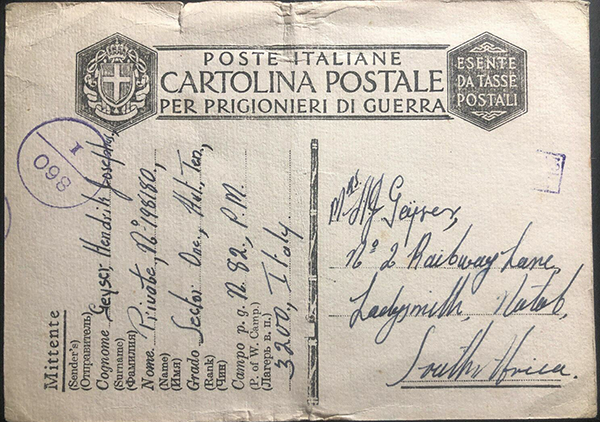 POSTE ITALIANE
CARTOLINA POSTALE
PER PRIGIONIERI DI GUERRA
ESENTE
DA TASSE
POSTALI
860
I
Mittente
(Sender's)
(Отправитель)
Cognome Geyser, Hendrik Josephus,
(Surname)
(Фамилия)
Nome. Private, No 198180,
(Name)
(Имя)
Grado Sector One, Hut, Ten,
(Rank)
(Чин)
Campo p. g. N. 82., P.M.
(P. of W. Camp.)
(Лагерь в. п.)
3200, Italy
Mrs. HJ Geyser,
No 2 Railway Lane,
Ladysmith, Natal,
South Africa.